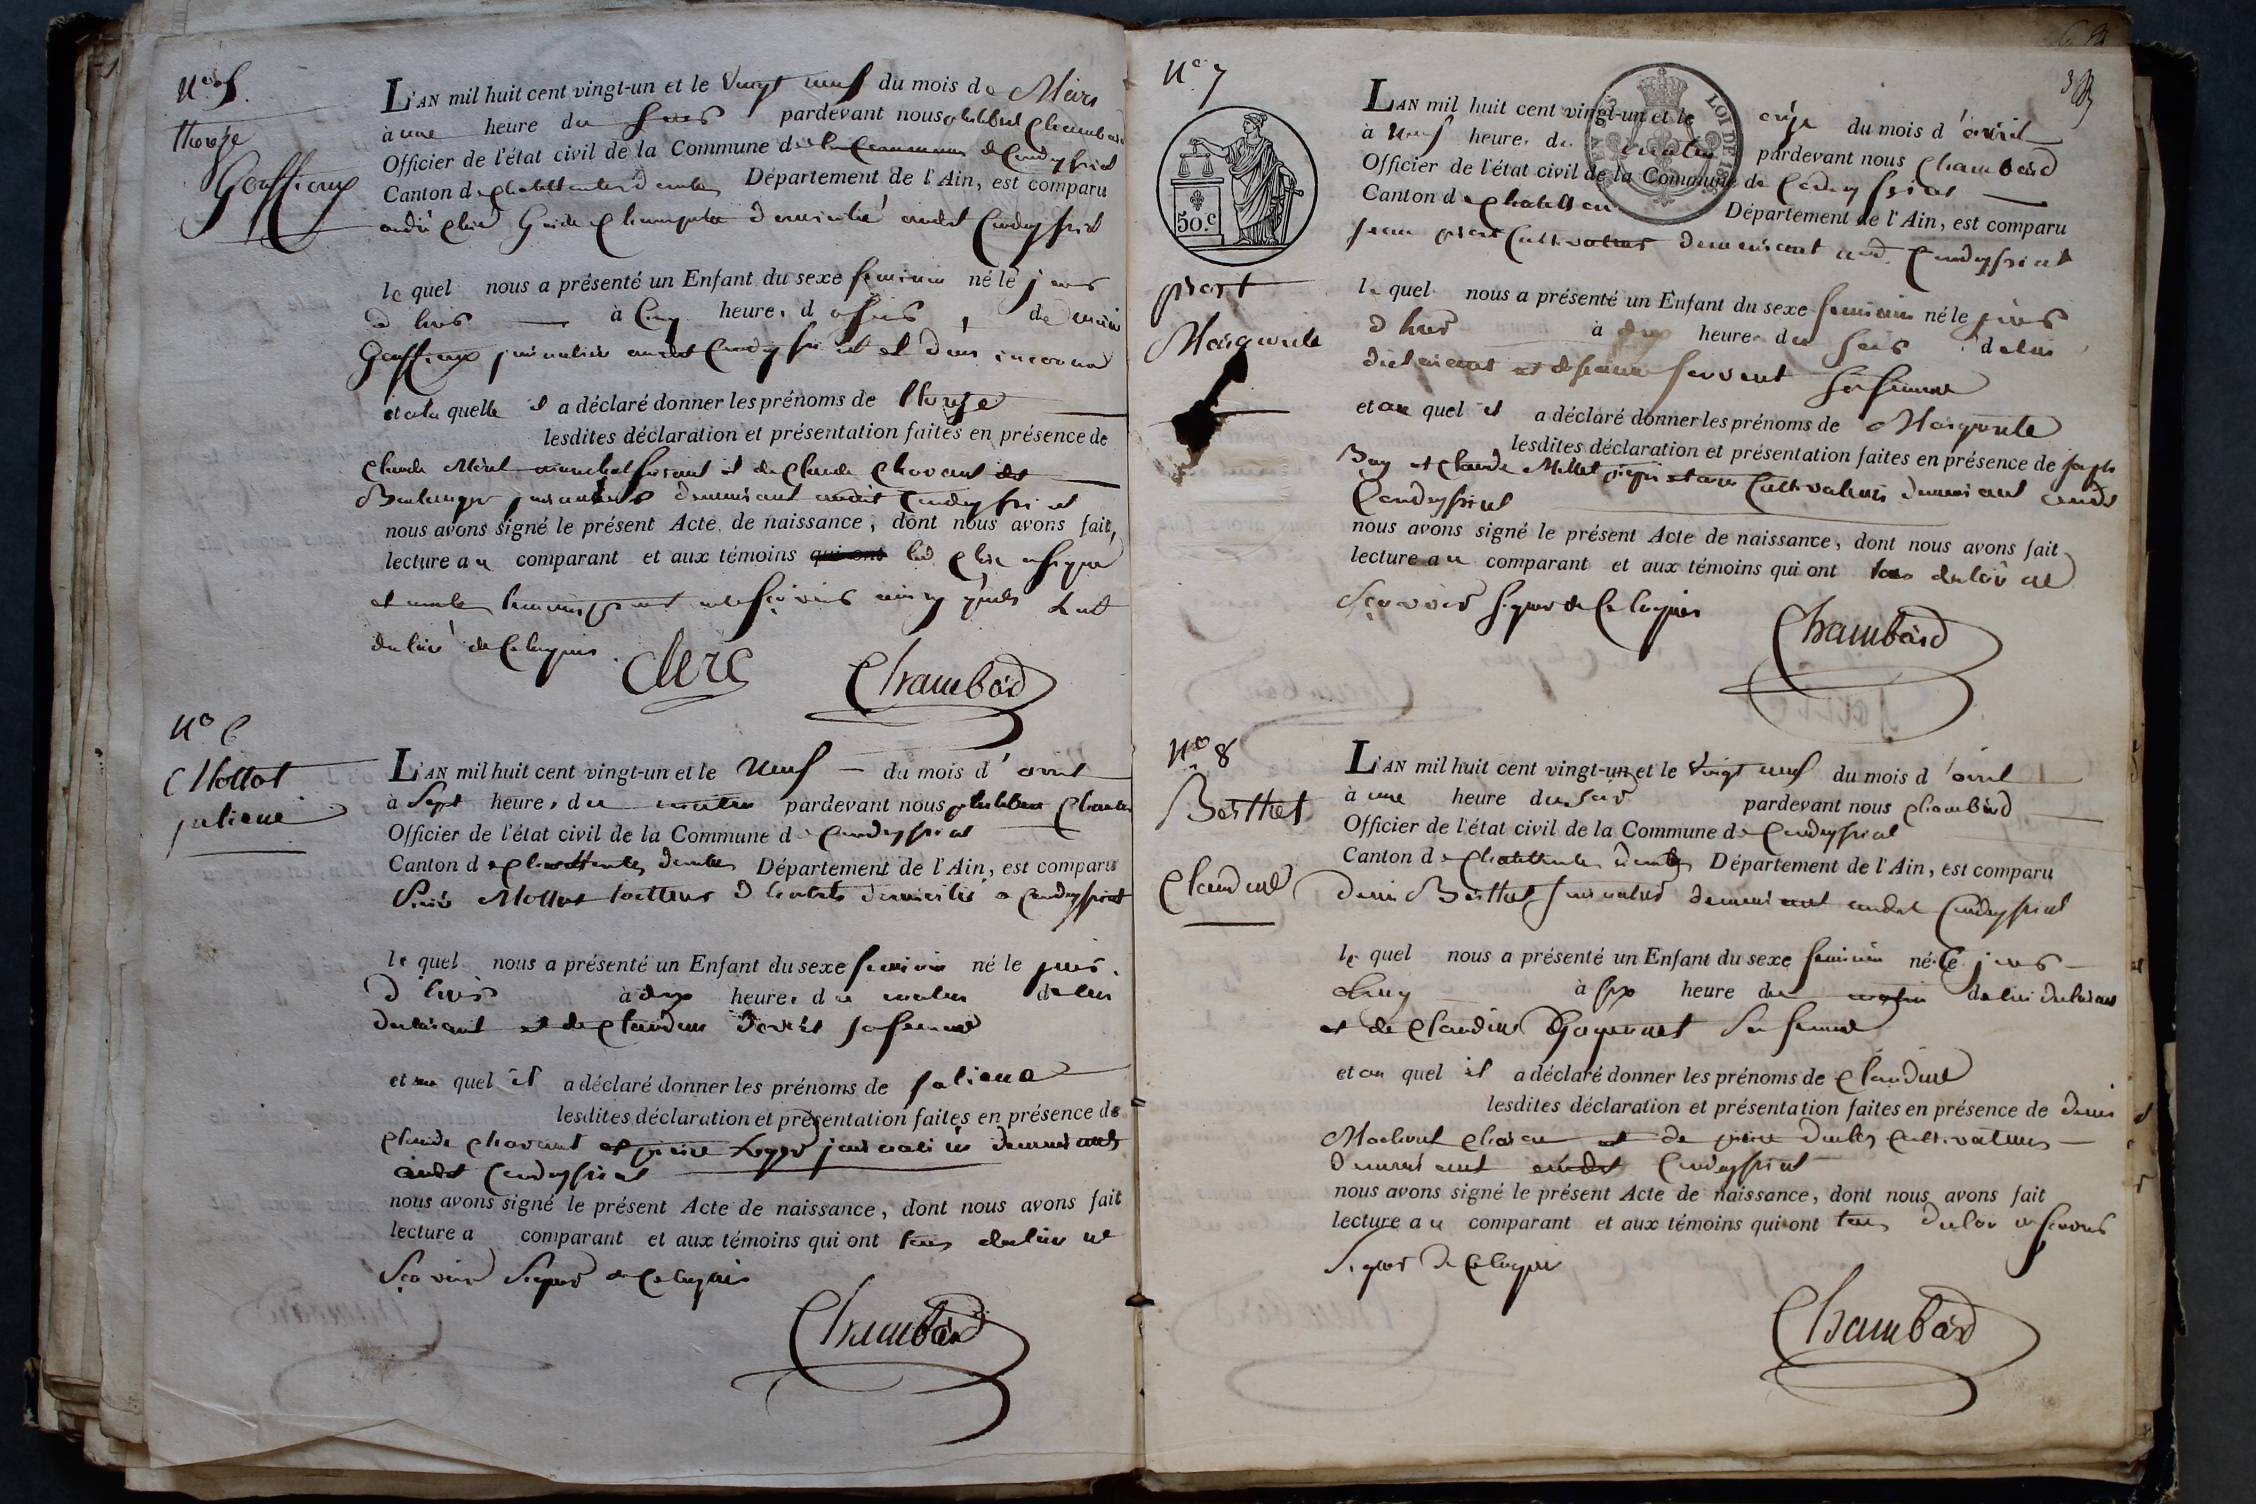 N.o 5
thereze
Gouffieux
L'AN mil huit cent vingt-un et le vingt neuf du mois de Mars
à une heure du soir pardevant nous philibert Chambard
Officier de l'état civil de la Commune de la Commune de Condeyssiat
Canton de chatillon les dombes Département de l'Ain, est comparu
andré Clerc Garde Champetre domicilié audit Condeyssiat
lequel nous a présenté un Enfant du sexe feminin né le jour
d'hier à Cinq heures du soir, de
Gouffieux journaliere audit Condeyssiat et d'un inconnu
et à laquelle il a déclaré donner les prénoms de thereze
lesdites déclaration et présentation faites en présence de
Claude marechal ferrant et de Claude Chavant
Boulanger demeurant audit Condeyssiat
nous avons signé le présent Acte de naissance, dont nous avons fait
lecture au comparant et aux témoins qui ont led Clerc a signé
et non les temoins pour ne sçavoir ainsi qu'ils l'ont
declaré de Ce Requis.
Clerc Chambard
N.o 6
Mottat
juliene
L'AN mil huit cent vingt-un et le neuf du mois d'avril
à Sept heures du matin pardevant nous philibert Chambard
Officier de l'état civil de la Commune de Condeyssiat
Canton de chatillon les dombes Département de l'Ain, est comparu
Mottat domicilié à Condeyssiat
lequel nous a présenté un Enfant du sexe feminin né le jour
d'hier à dix heures du matin de lui
declarant et de Claudine sa femme
et au quel il a déclaré donner les prénoms de juliene
lesdites déclaration et présentation faites en présence de
Claude Chavant et pierre journaliers demeurants
audit Condeyssiat
nous avons signé le présent Acte de naissance, dont nous avons fait
lecture a comparant et aux témoins qui ont tous declaré ne
Sçavoir Signer de Ce Requis
Chambard
N.o 7
50.c
LOI DE
Marguerite
L'AN mil huit cent vingt-un et le onze du mois d'avril
à neuf heures du matin pardevant nous Chambard
Officier de l'état civil de la Commune de Condeyssiat
Canton de chatillon Département de l'Ain, est comparu
jean Cultivateur demeurant aud. Condeyssiat
lequel nous a présenté un Enfant du sexe feminin né le jour
d'hier à dix heures du soir de lui
declarant et de servent sa femme
et au quel il a déclaré donner les prénoms de Marguerite
lesdites déclaration et présentation faites en présence de joseph
Buy et Claude Millet Cultivateurs demeurant audit
Condeyssiat
nous avons signé le présent Acte de naissance, dont nous avons fait
lecture au comparant et aux témoins qui ont tous declaré ne
Sçavoir Signer de Ce Requis
Chambard
N.o 8
Berthet
Claudine
L'AN mil huit cent vingt-un et le vingt neuf du mois d'avril
à une heure du soir pardevant nous Chambard
Officier de l'état civil de la Commune de Condeyssiat
Canton de chatillon les dombes Département de l'Ain, est comparu
denis Berthet journalier demeurant audit Condeyssiat
lequel nous a présenté un Enfant du sexe feminin né le jour
à six heure du matin de lui declarant
et de Claudine sa femme
et au quel il a déclaré donner les prénoms de Claudine
lesdites déclaration et présentation faites en présence de denis
et de pierre Cultivateurs
demeurant audit Condeyssiat
nous avons signé le présent Acte de naissance, dont nous avons fait
lecture au comparant et aux témoins qui ont tous declaré ne sçavoir
Signer de Ce Requis
Chambard